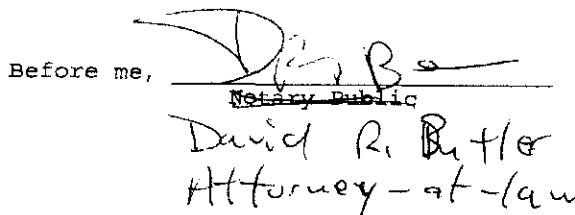 Before me,
Notary Public
David R. Butler
Attorney-at-law